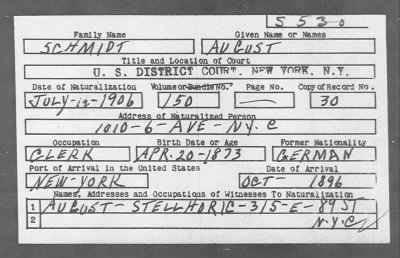 S 530
Family Name Given Name or Names
SCHMIDT AUGUST
Title and Location of Court
U. S. DISTRICT COURT, NEW YORK, N.Y.
Date of Naturalization Volume or Bundle No. Page No. Copy of Record No.
JULY-12-1906 150 — 30
Address of Naturalized Person
1010-6-AVE-N.Y.C
Occupation Birth Date or Age Former Nationality
CLERK APR.20-1873 GERMAN
Port of Arrival in the United States Date of Arrival
NEW-YORK OCT- 1896
Names, Addresses and Occupations of Witnesses To Naturalization
1 AUGUST-STELLHORIC-315-E-89 ST
2 N.Y.C